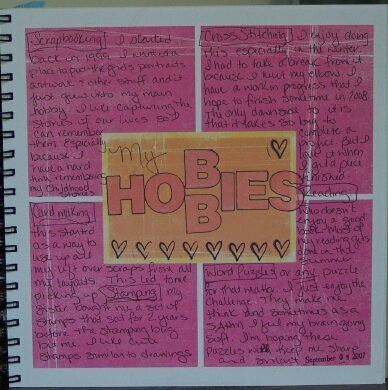 Scrapbooking I started
back in 1999. I wanted a
place to put the girls portraits
artwork & other stuff and it
just grew into my main
hobby. I like capturing the
stories of our lives so I
can remember
them. Especially
because I
have a hard
time remembering
my childhood
stories
Card making
this started
as a way to
use up all
my left over scraps from all
my layouts. This led to me
picking up Stamping my
sister bought me a set of
stamps that sat for 2 years
before the stamping bug
bit me. I like cute
stamps similar to drawings
My
HOBBIES
Cross Stitching I enjoy doing
this especially in the winter.
I had to take a break from it
because I hurt my elbow. I
have a work in progress that I
hope to finish sometime in 2008.
The only downside to it is
that it takes so long to
complete a
project. But I
love it when
I get it finished
Reading
who doesn't
enjoy a good
book. Most of
my reading gets
done in the
summer
Word Puzzles or any puzzle
for that matter. I just enjoy the
challenge. They make me
think and sometimes as a
SAHM I feel my brain going
soft. I'm hoping these
puzzles will keep me sharp
and
September 04 2007